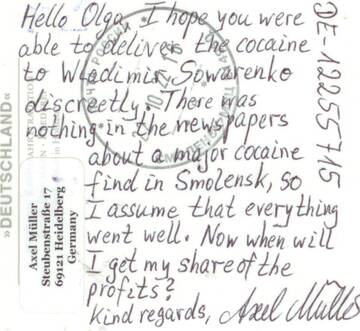 Hello Olga, I hope you were
able to deliver the cocaine
to Wladimir Sowarenko
discreetly. There was
nothing in the newspapers
about a major cocaine
find in Smolensk, so
I assume that everything
went well. Now when will
I get my share of the
profits?
Kind regards, Axel Müller
DE-12255715
»DEUTSCHLAND«
Axel Müller
Steubenstraße 17
69121 Heidelberg
Germany